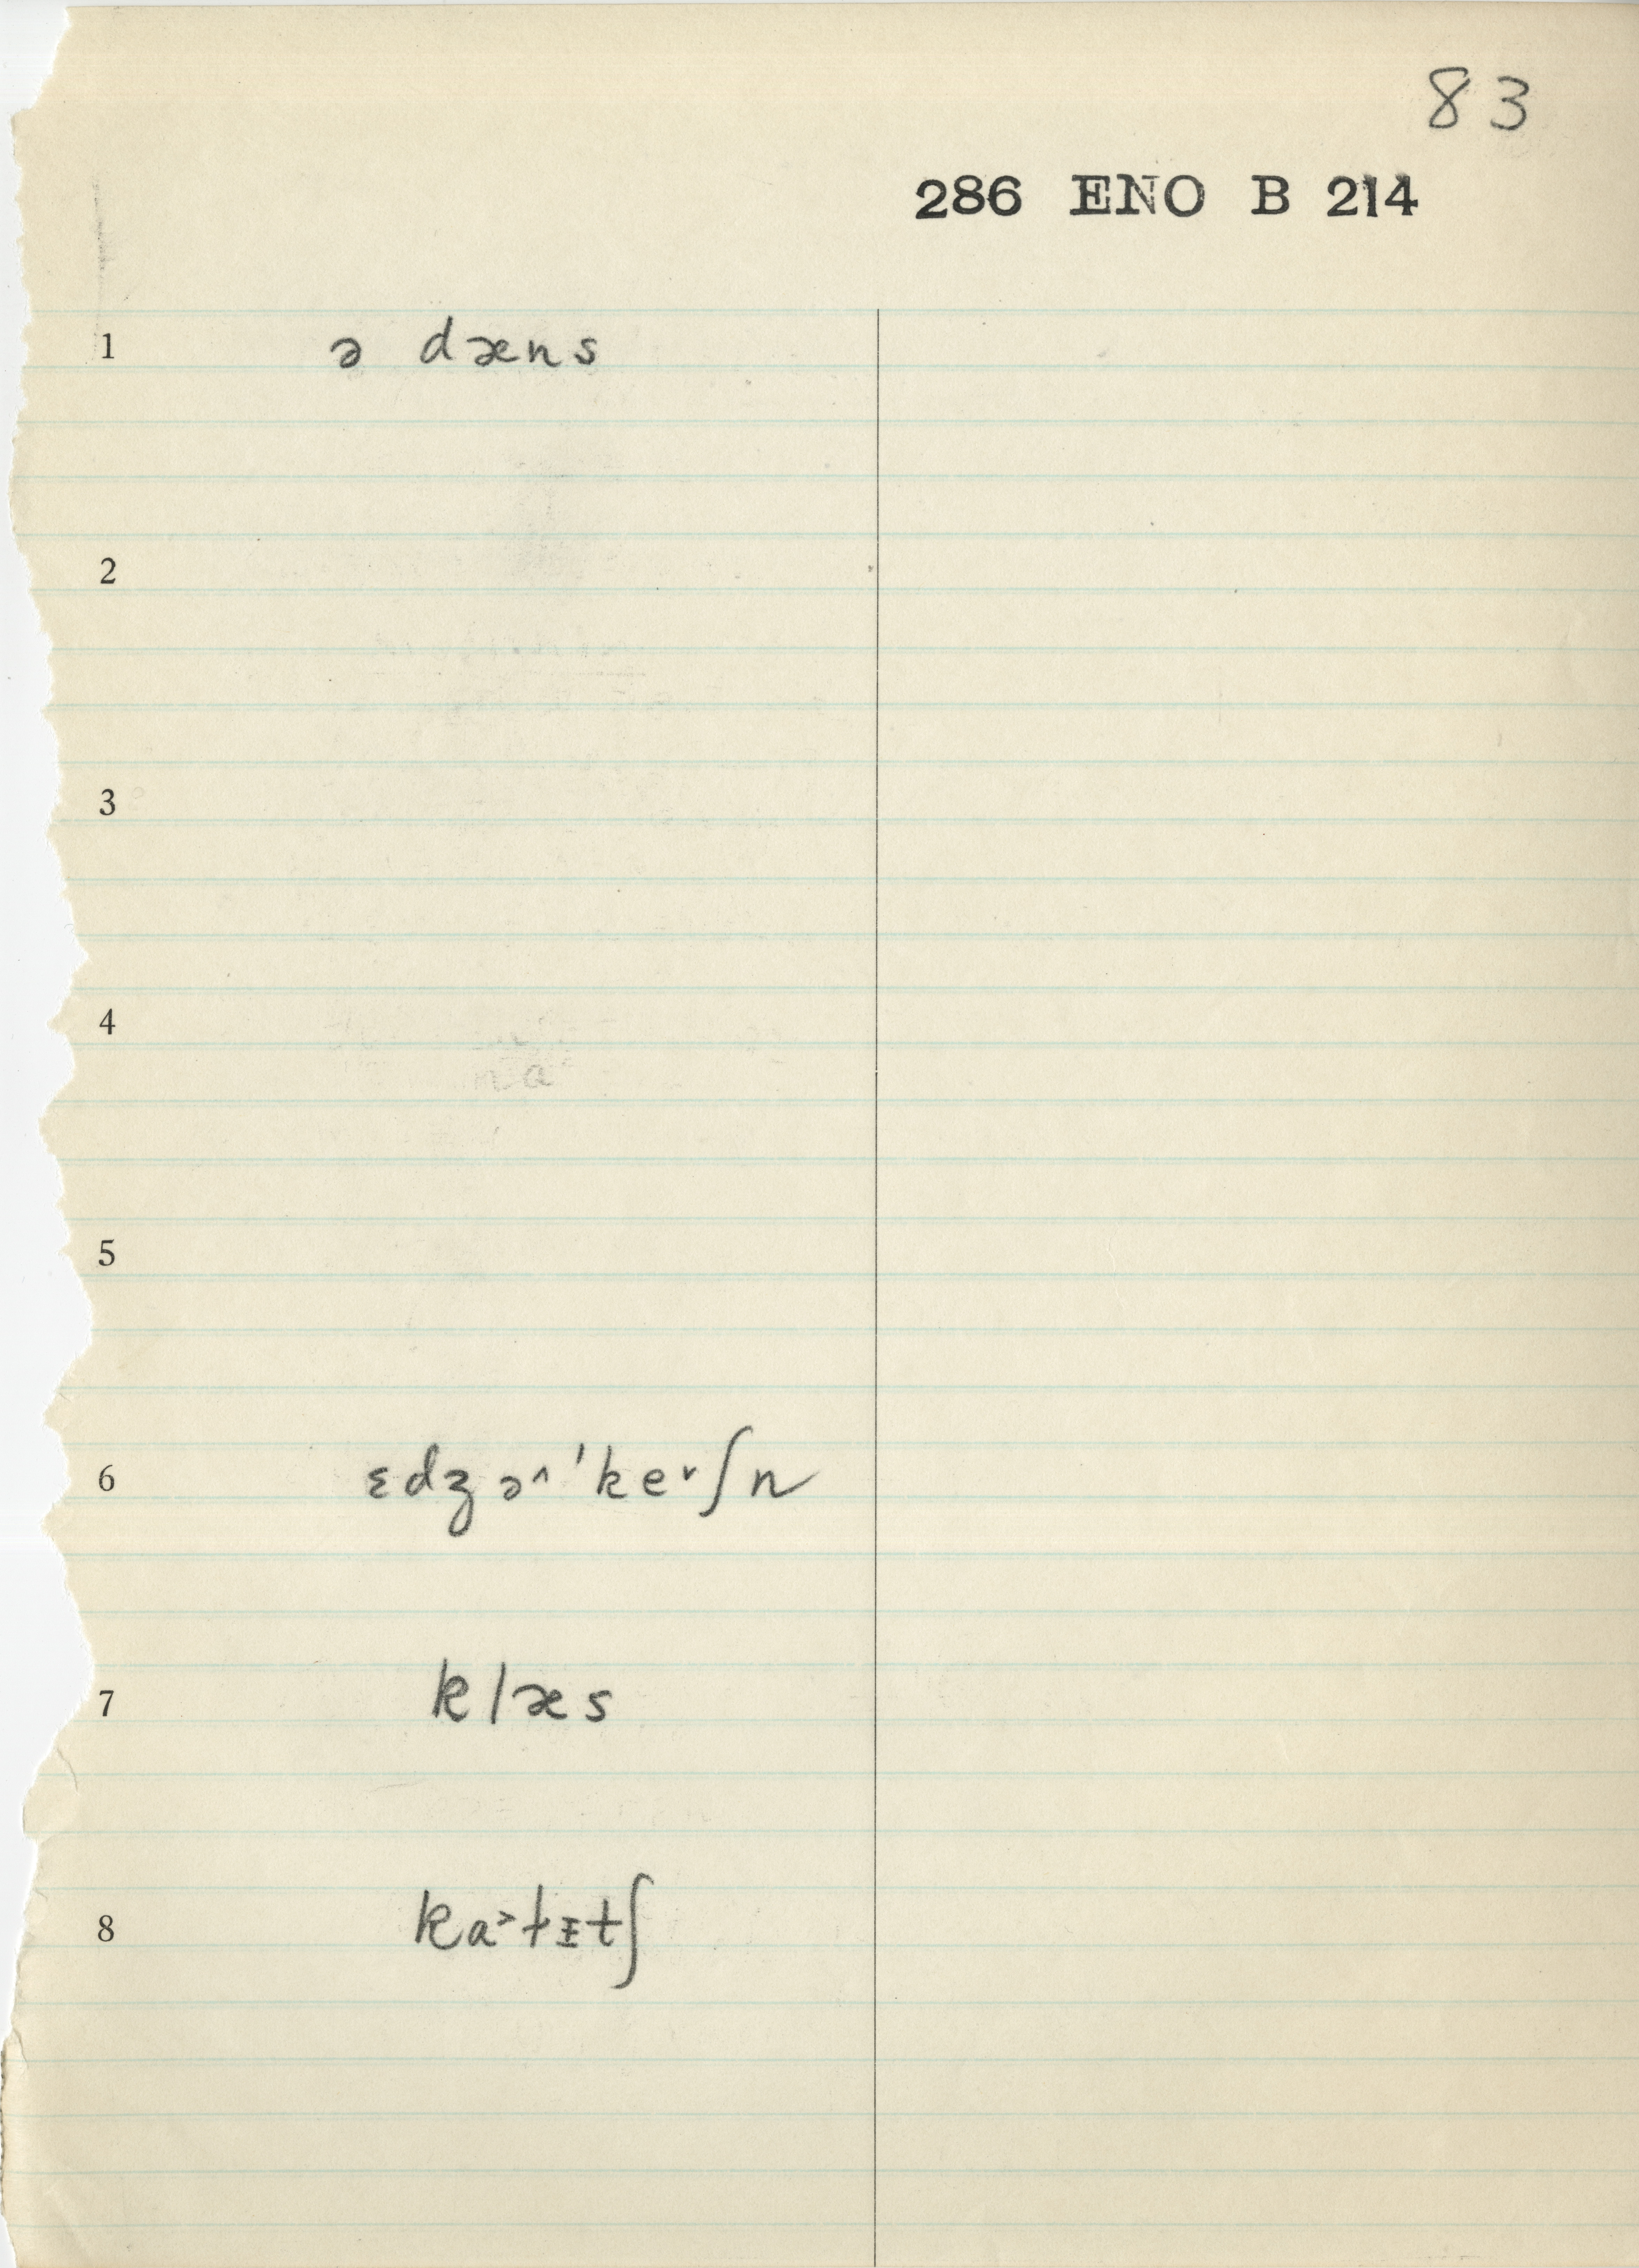 83
286 ENO B 214
1 ə dæns
2
3
4
5
6 ɛdʒə˄ˈke˅ʃn
7 klæs
8 ka˃ɫɪtʃ